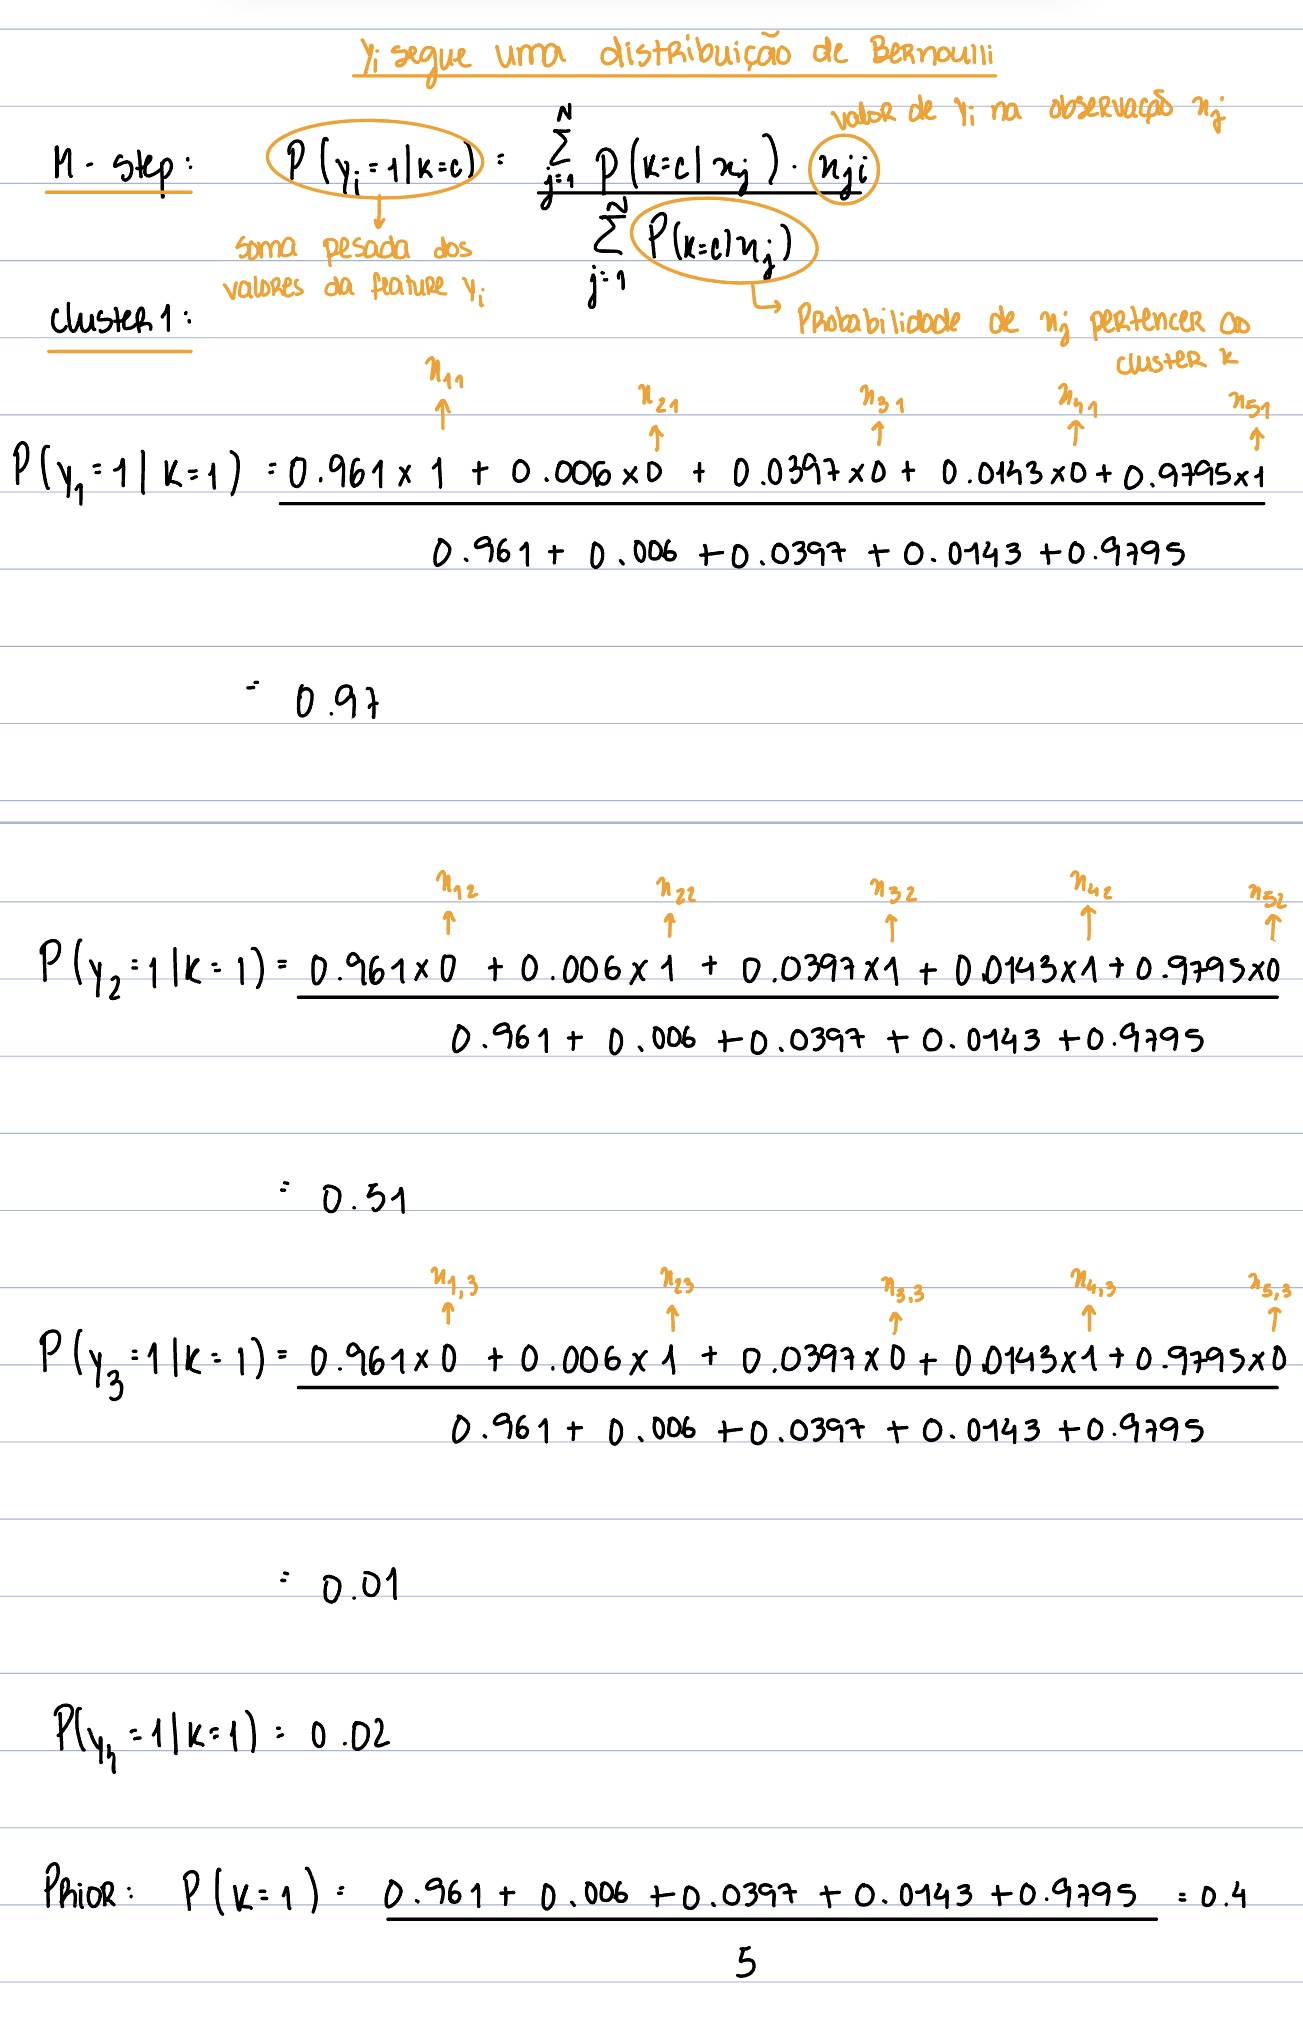 Yi segue uma distribuição de Bernoulli
valor de Yi na observação xj
M-step: P(yi=1|K=c) = Σ_{j=1}^{N} P(K=c|xj) · xji / Σ_{j=1}^{N} P(K=c|xj)
soma pesada dos
valores da feature Yi
Cluster 1:
Probabilidade de xj pertencer ao
cluster K
x11 x21 x31 x41 x51
↑ ↑ ↑ ↑ ↑
P(y1=1|K=1) = 0.961×1 + 0.006×0 + 0.0397×0 + 0.0143×0 + 0.9795×1
0.961 + 0.006 + 0.0397 + 0.0143 + 0.9795
= 0.97
x12 x22 x32 x42 x52
↑ ↑ ↑ ↑ ↑
P(y2=1|K=1) = 0.961×0 + 0.006×1 + 0.0397×1 + 0.0143×1 + 0.9795×0
0.961 + 0.006 + 0.0397 + 0.0143 + 0.9795
= 0.51
x1,3 x23 x3,3 x4,3 x5,3
↑ ↑ ↑ ↑ ↑
P(y3=1|K=1) = 0.961×0 + 0.006×1 + 0.0397×0 + 0.0143×1 + 0.9795×0
0.961 + 0.006 + 0.0397 + 0.0143 + 0.9795
= 0.01
P(y4=1|K=1) = 0.02
Prior: P(K=1) = 0.961 + 0.006 + 0.0397 + 0.0143 + 0.9795 = 0.4
5